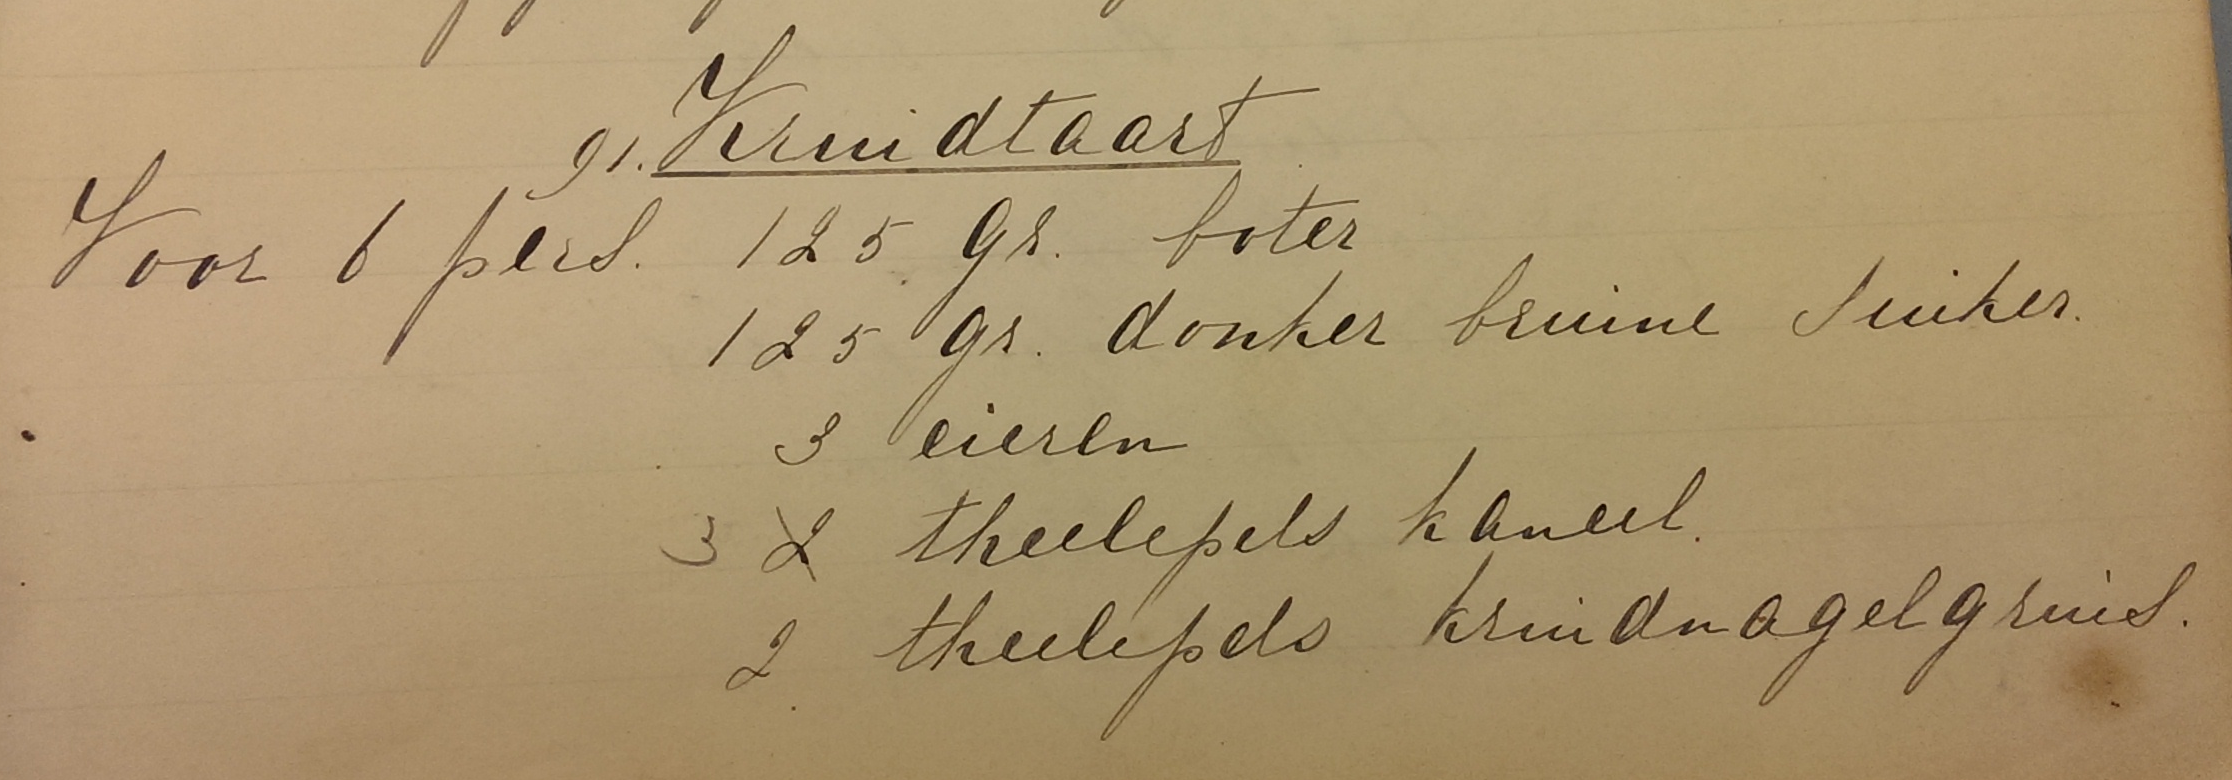 91. Kruidtaart
Voor 6 pers. 125 gr. boter
125 gr. donker bruine suiker.
3 eieren
3 2 theelepels kaneel.
2 theelepels kruidnagelgruis.